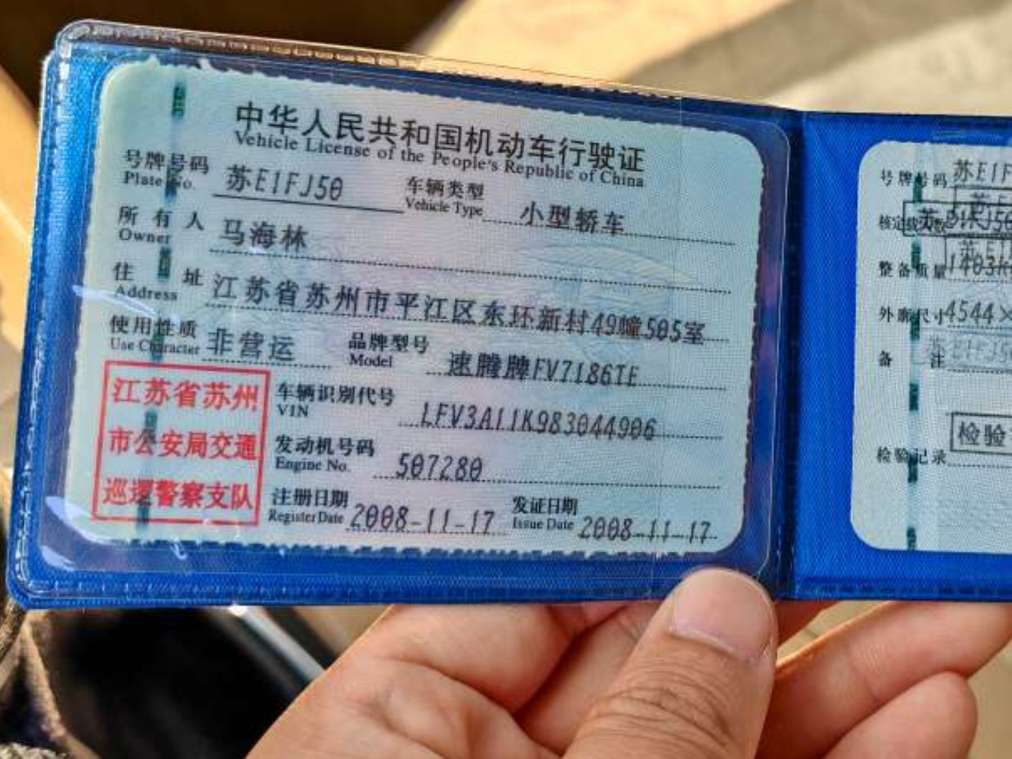 中华人民共和国机动车行驶证
Vehicle License of the People's Republic of China
号牌号码 苏E1FJ50 车辆类型 小型轿车
Plate No. Vehicle Type
所有人 马海林
Owner
住址 江苏省苏州市平江区东环新村49幢505室
Address
使用性质 非营运 品牌型号 速腾牌FV7186TE
Use Character Model
江苏省苏州
市公安局交通
巡逻警察支队
车辆识别代号 LFV3A11K983044906
VIN
发动机号码 507280
Engine No.
注册日期 2008-11-17 发证日期 2008-11-17
Register Date Issue Date
号牌号码 苏E1F
核定载人数
整备质量 1403K
外廓尺寸 4544×
备注
检验
检验记录